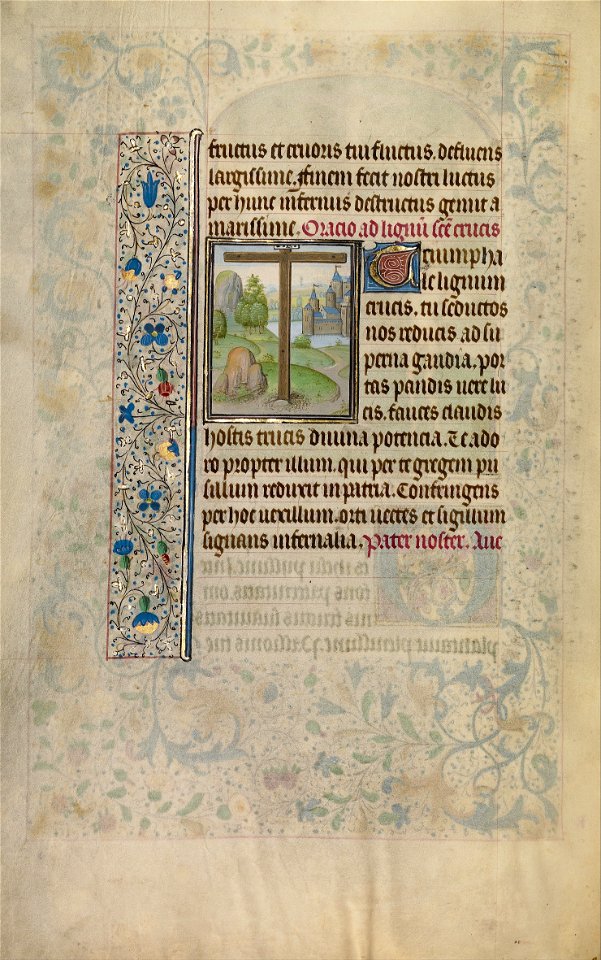 fructus et cruoris tui fluctus. defluens
largissime. ffinem fecit nostri luctus
per hunc infernus destructus gemit a
marissime. Oracio ad lignū scē crucis
Triumpha
le lignum
crucis. tu seductos
nos reducis. ad su
perna gaudia. por
tas pandis vere lu
cis. fauces claudis
hostis trucis divina potencia. Te ado
ro propter illum. qui per te gregem pu
sillum reduxit in patria. Confringens
per hoc vexillum. orti vectes et sigillum
signans infernalia. Pater noster. Ave